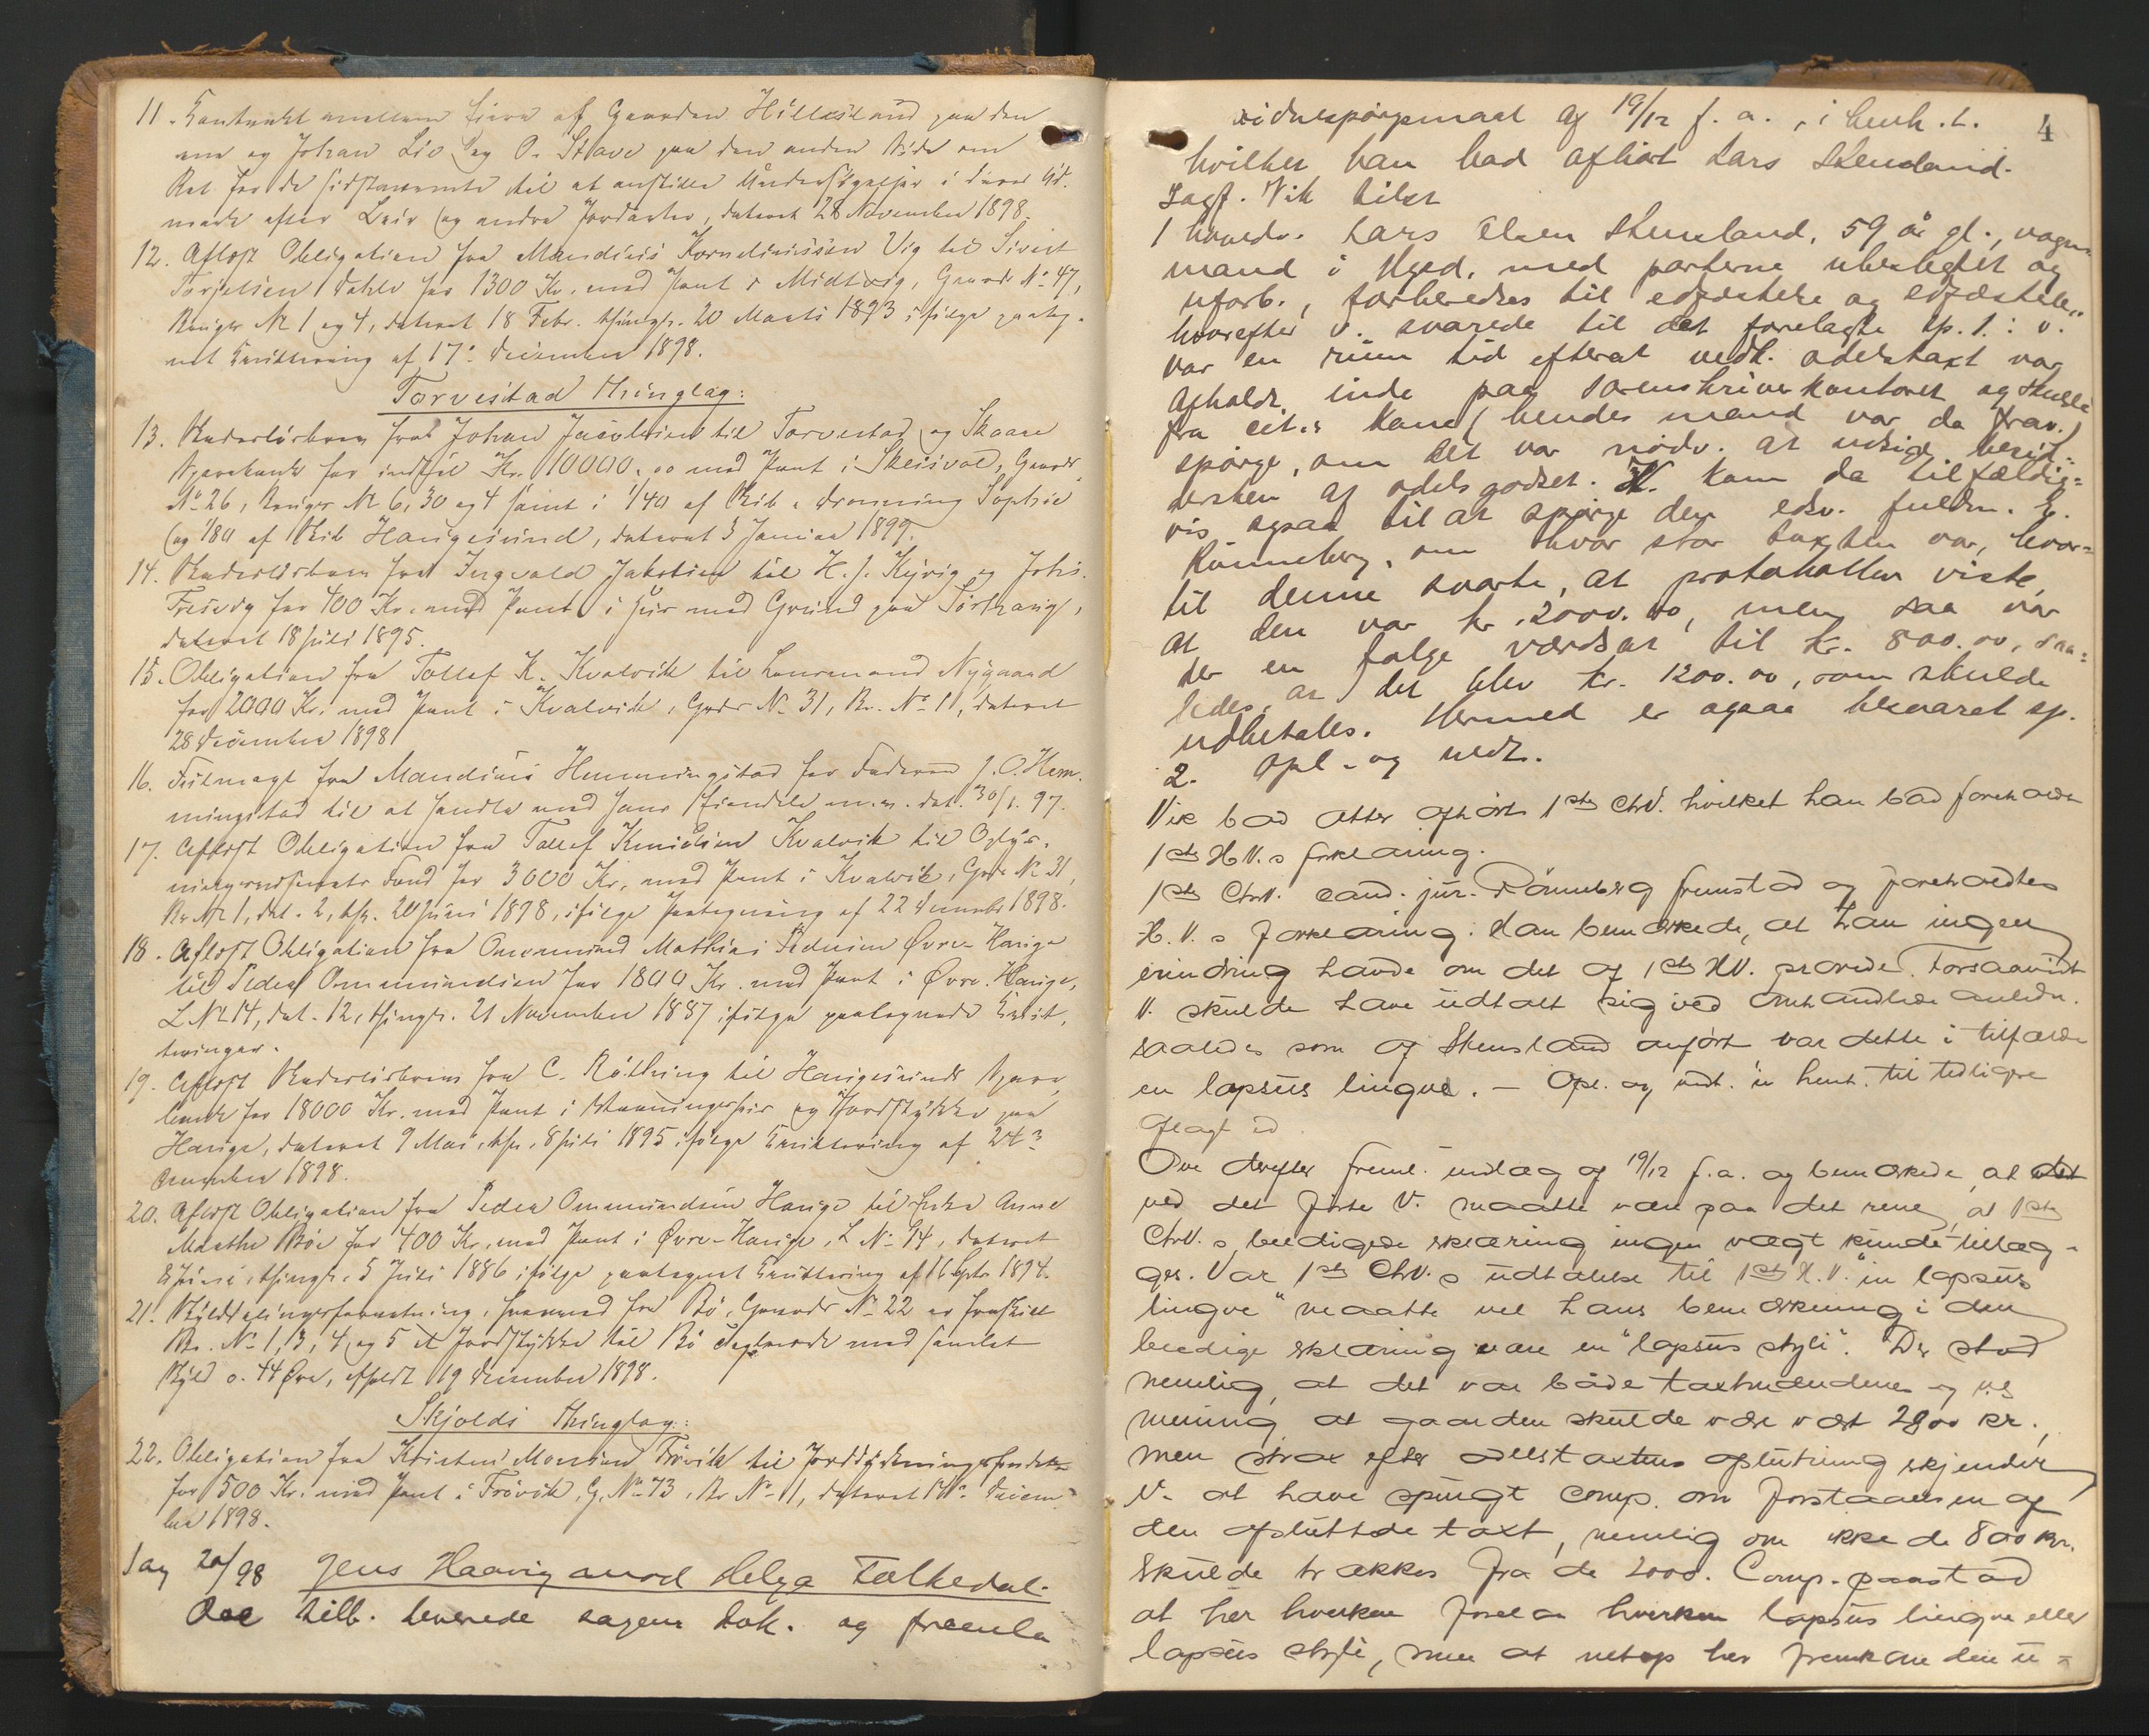 11. Kontrakt mellem Eiere af Gaarden Hillesland paa den
ene og Johan Lie og O. Stave paa den anden Side om
Ret for de sidstnævnte til at anstille Undersøgelser i deres Ud-
mark efter Leir og andre Jordarter, dateret 28 November 1898.
12. Aflyst Obligation fra Mandius Korneliussen Vig til Sivert
Torjeisen Dahle for 1300 Kr. med Pant i Midtvig, Gaards No 47,
Bruges No 1 og 4, dateret 18 Febr. thingl. 20 Marts 1893 ifølge paateg-
net Kvittering af 17de December 1898.
Torvestad Thinglag:
13. Panteobligation fra Johan Jacobsen til Torvestad og Skaare
Sparebank for indtil Kr. 10000.00 med Pant i Skeisvoll, Gaards
No 26, Bruges No 6, 30 og 4 samt i 1/40 af Skib Dronning Sophie
og 1/80 af Skib Haugesund, dateret 3 Januar 1899.
14. fra Ingvald Jakobsen til H. J. Kyvig og Johs.
for 400 Kr. med Pant i Hus med Grund paa Sørhaug,
dateret 18 Juli 1895.
15. Obligation fra Tollef K. Kvalvik til Lensmand Nygaard
for 2000 Kr. med Pant i Kvalvik, Gards No 31, Br. No 11, dateret
28 December 1898
16. Fuldmagt fra Mandius Hemmingstad for Faderen J. O. Hem-
mingstad til at handle med hans Eiendele m. m. dat. 30/1. 97.
17. Aflyst Obligation fra Tollef Knudsen Kvalvik til Oplys-
ningsvæsenets Fond for 3000 Kr. med Pant i Kvalvik, Gards No 31,
Br. No 1, dat. 2, thl. 20 Juni 1898, ifølge Paategning af 22 December 1898.
18. Aflyst Obligation fra Ommund Mathias Pedersen Øvre-Hauge
til Peder Ommundsen for 1800 Kr. med Pant i Øvre-Hauge,
L No 14, dat. 12, thingl. 21 November 1887 ifølge paategnede Kvit-
teringer.
19. Aflyst fra C. Röthing til Haugesunds Spare-
bank for 18000 Kr. med Pant i Vaaningshus og Jordstykke paa
Hauge, dateret 9 Mai, thl. 8 Juli 1895 ifølge Kvittering af 24de
December 1898.
20. Aflyst Obligation fra Peder Ommundsen Hauge til Enke Anne
Marthe Bøe for 400 Kr. med Pant i Øvre-Hauge, L No 14, dateret
Juni, thingl. 5 Juli 1886 ifølge paategnet Kvittering af 16 Septr 1894.
21. Skylddelingsforretning, hvorved fra Bø, Gaards No 22 er fraskilt
Br. No 1, 3, 4 og 5 et Jordstykke til Bø Teglverk med samlet
Skyld 0.44 Øre, afholdt 19 December 1898.
Skjolds Thinglag:
22. Obligation fra Kristen Monsen Frövik til Jorddyrkningsfondet
for 500 Kr. med Pant i Frövik, G. No 73, Br No 11, dateret Decem-
ber 1898.
Sag 20/98 Jens Haavig mod Helga Falkedal.
Ove tilst. leverede sagens dok. og fremla
4
vidnespörgsmaal af 19/12 f. a., i henh. t.
hvilket han bad afhört Lars Stensland.
Sagf. Vik tilst
1 hovedv. Lars Elsen Stensland, 59 år gl., vogn-
mand i Hgsd. med parterne ubeslegtet og
uforb., forberedtes til edfæstelse og edfæstede,
hvorefter V. svarede til det forelagte sp. 1.: V.
var en rum tid efterat vedk. odelstaxt var
afholdt, inde paa sorenskriverkontoret og skulde
fra cit.s kone (hendes mand var da frav.)
spörge, om det var nödv. at udsige besid-
delsen af odelsgodset. V. kom da tilfældig-
vis ogsaa til at spörge den edsv. fuldm. hr.
Rönneberg, om hvor stor taxten var, hvor-
til denne svarte, at protokollen viste,
at den var kr. 2000.00, men saa var
der en følge værdsat til kr. 800.00, saa-
ledes, at det blev kr. 1200.00, som skulde
udbetales. Hermed er ogsaa besvaret sp.
2. Opl. og vedt.
Vik bad atter afhört 1ste CtrV. hvilket han bad foreholdt
1ste HV.s forklaring.
1ste CtrV. cand. jur. Rönneberg fremstod og foreholdtes
H. V.s forklaring. Han bemærkede, at han ingen
erindring havde om det af 1ste HV. provede. Forsaavidt
V. skulde have udtalt sig ved omhandlede anledn.
saaledes som af Stensland anfört var dette i tilfælde
en lapsus lingvæ. – Opl. og vedt. u. henh. til tidligere
aflagt ed
Ove derefter freml. indlæg af 19/12 f. a. og bemærkede, at det
ved det förte V. maatte være paa det rene, at 1ste
CtrV.s beedigede erklæring ingen vægt kunde tillæg-
ges. Var 1ste CtrV.s udtalelse til 1ste H. V. "en lapsus
lingvæ" maatte vel hans bemærkning i den
beedige erklæring være en "lapsus styli". Der stod
nemlig, at det var både taxtmændenes og V.s
mening, at gaarden skulde være værdt 2800 kr.,
men strax efter odelstaxtens afslutning erkjender
V. at have spurgt comp. om forstaaelsen af
den afsluttede taxt, nemlig om ikke de 800 kr.
skulde trækkes fra de 2000. Comp. paastod
at her hverken forelaa hverken lapsus lingvæ eller
lapsus styli, men at netop her fremkom den u-